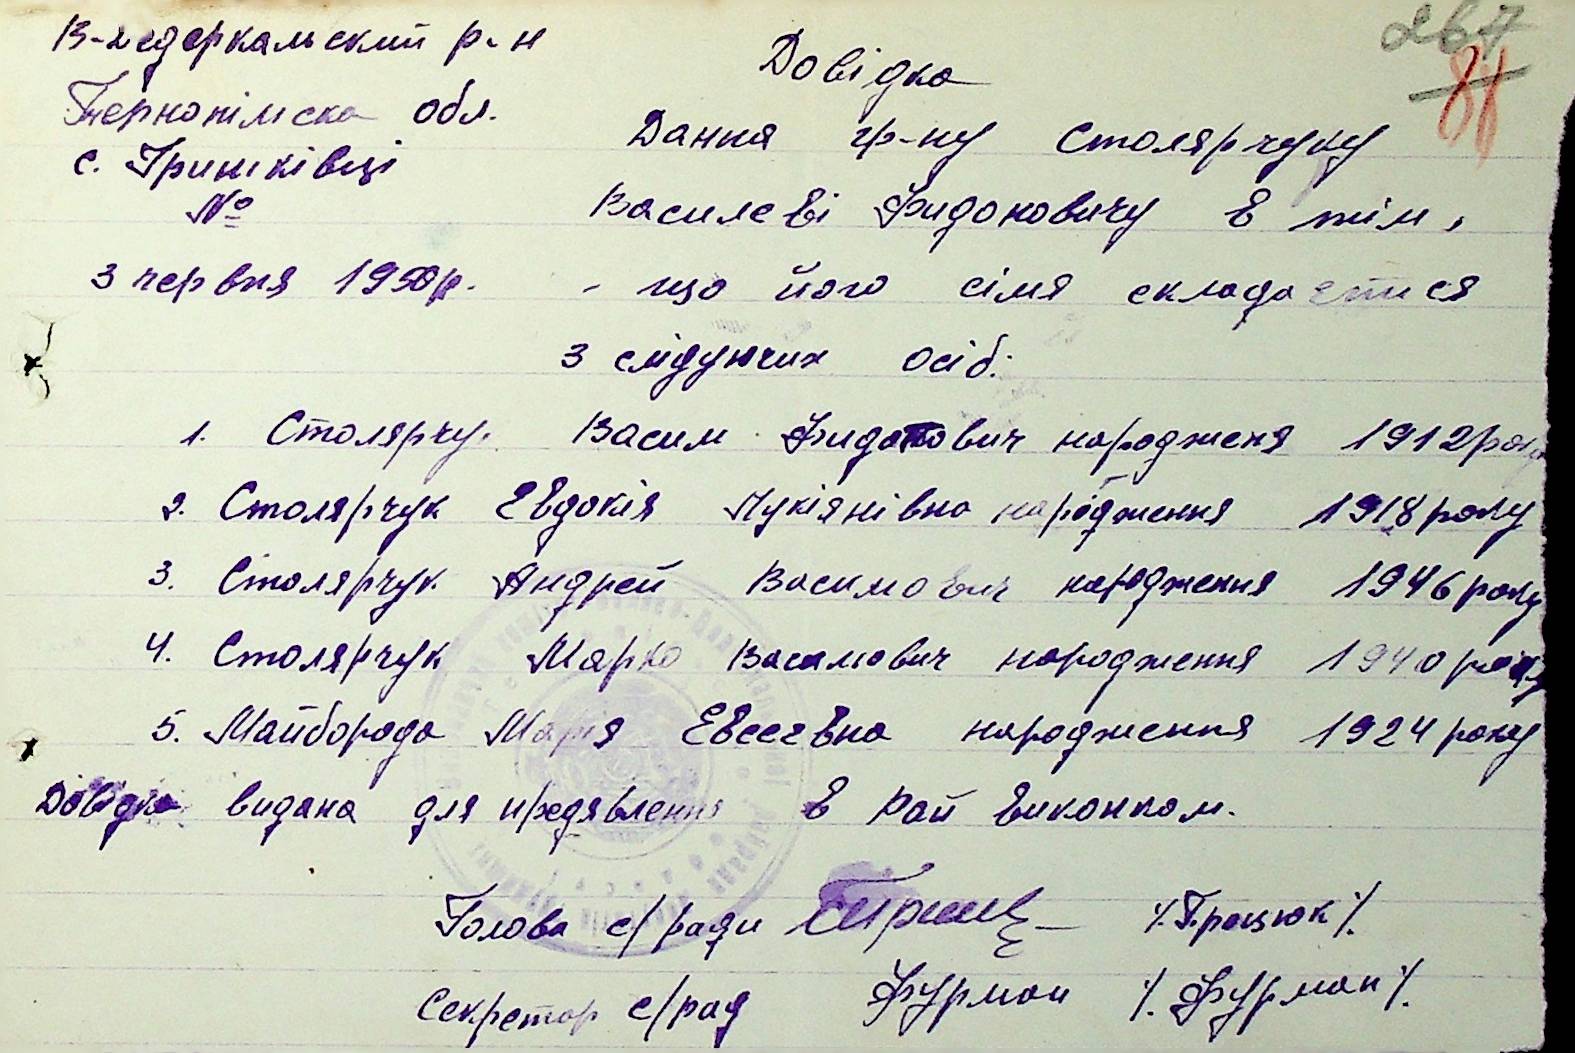 267
В-Дедеркальский р-н
Тернопільска обл.
с. Гришківці
№
3 червня 1950р.
Довідка
Данна гр-ну Столярчуку
Василеві Фидоновичу в тім,
- що його сімя складаєтися
з слідуючих осіб:
1. Столярчу. Васил Фидонович народженя 1912 року
2. Столярчук Евдокія Лукіянівна народження 1918 року
3. Столярчук Андрей Василович народження 1946 року
4. Столярчук Марко Василович народження 1940 року
5. Майборода Марія Евсеєвна народження 1924 року
Довідка видана для предявлення в Рай виконком.
Голова с/ради /.Грецюк/.
Секретар с/рад Фурман /.Фурман/.